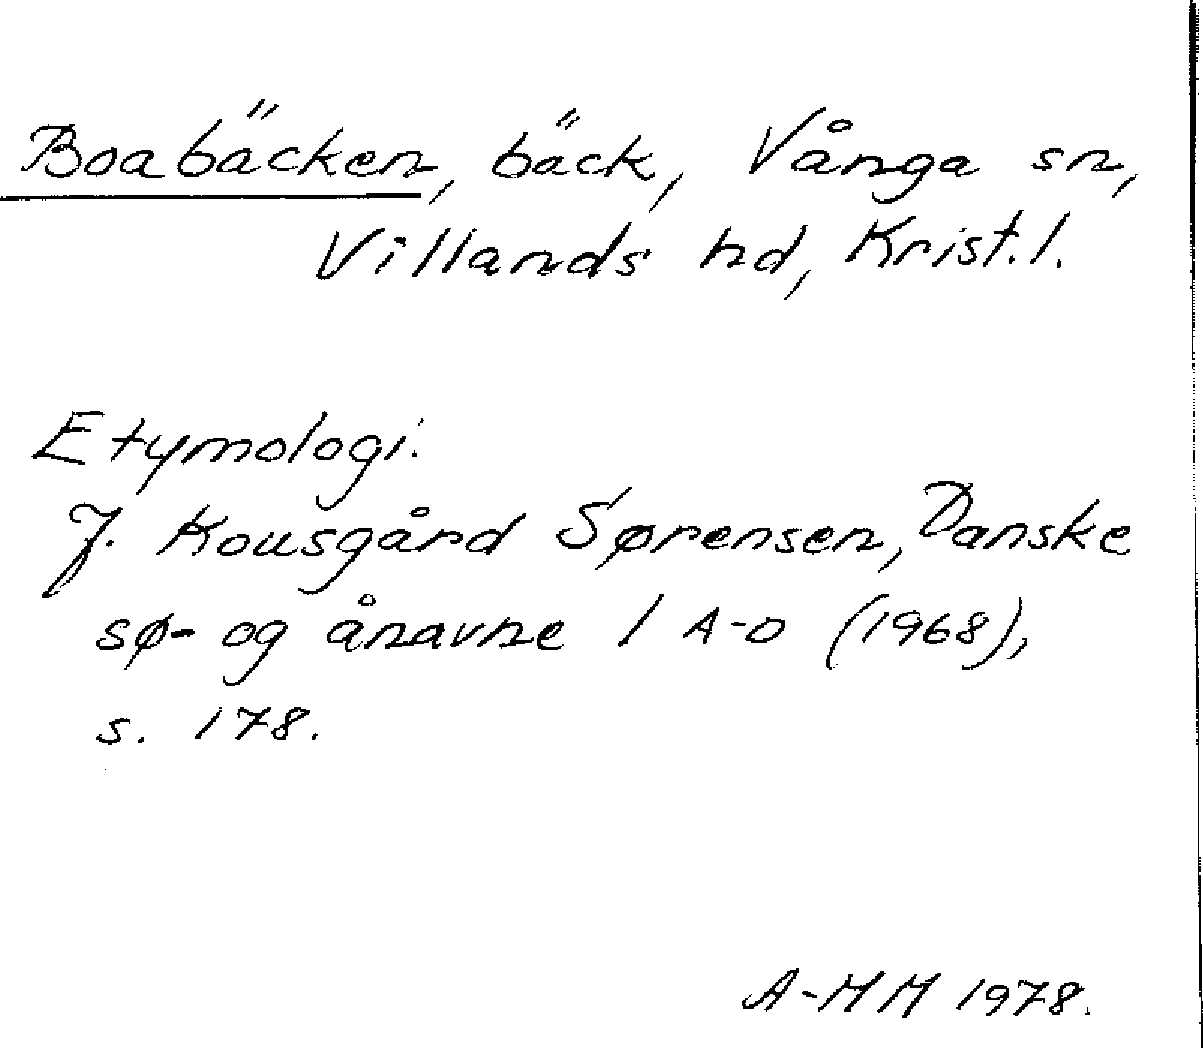 Boabäcken, bäck, Vånga sn,
Villands hd, Krist. l.
Etymologi:
J. Kousgård Sørensen, Danske
sø- og ånavne 1 A-O (1968),
s. 178.
A-MM 1978.